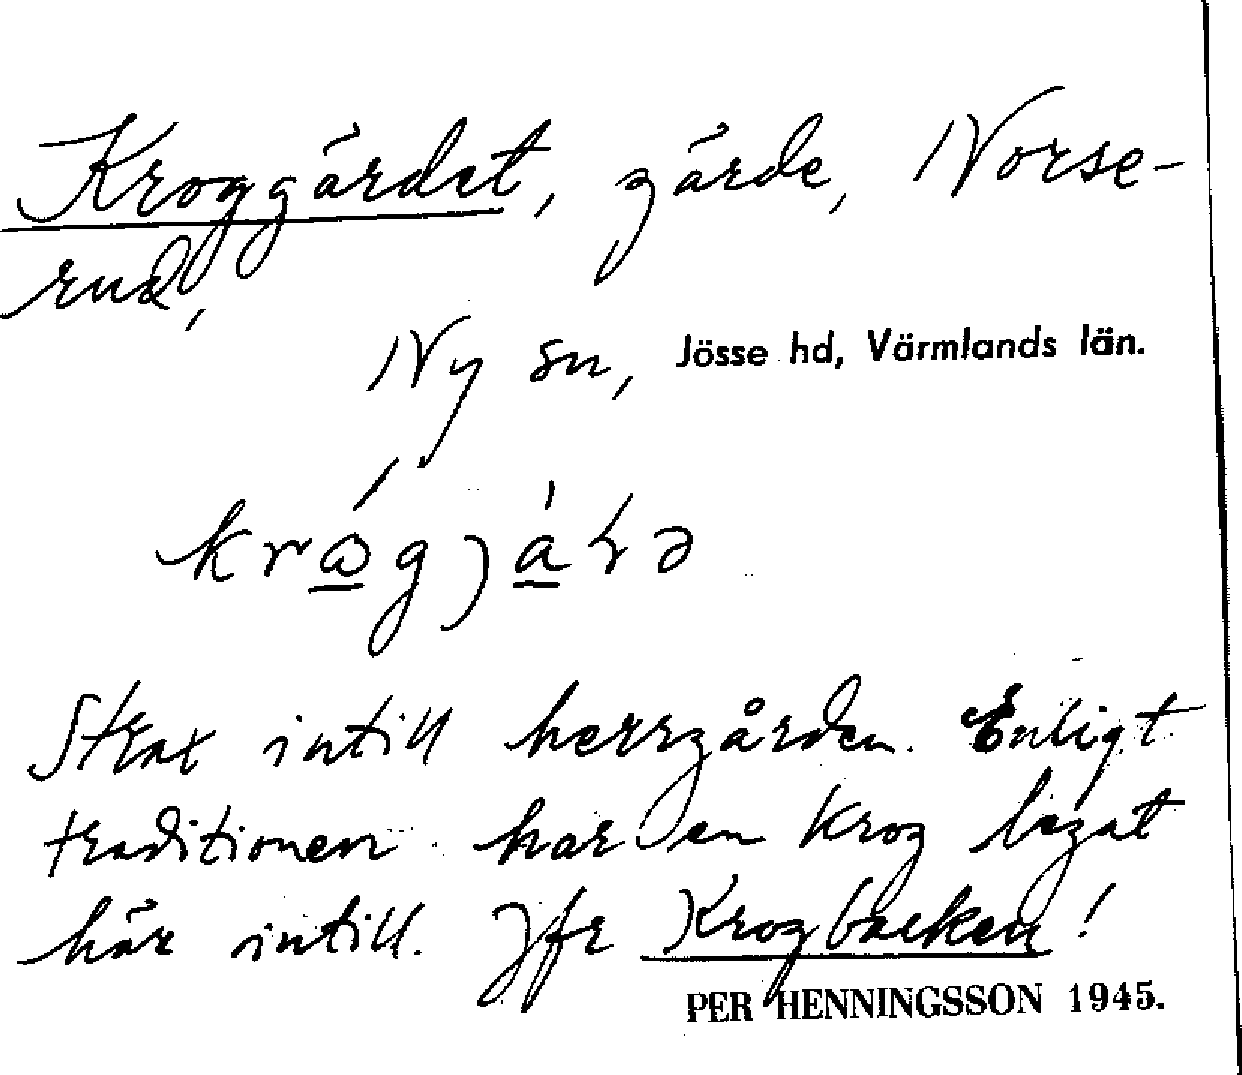 Kroggärdet, gärde, Norse-
rud,
Ny sn, Jösse hd, Värmlands län.
Strax intill herrgården. Enligt
traditionen har en krog legat
här intill. Jfr Krogbacken!
PER HENNINGSSON 1945.